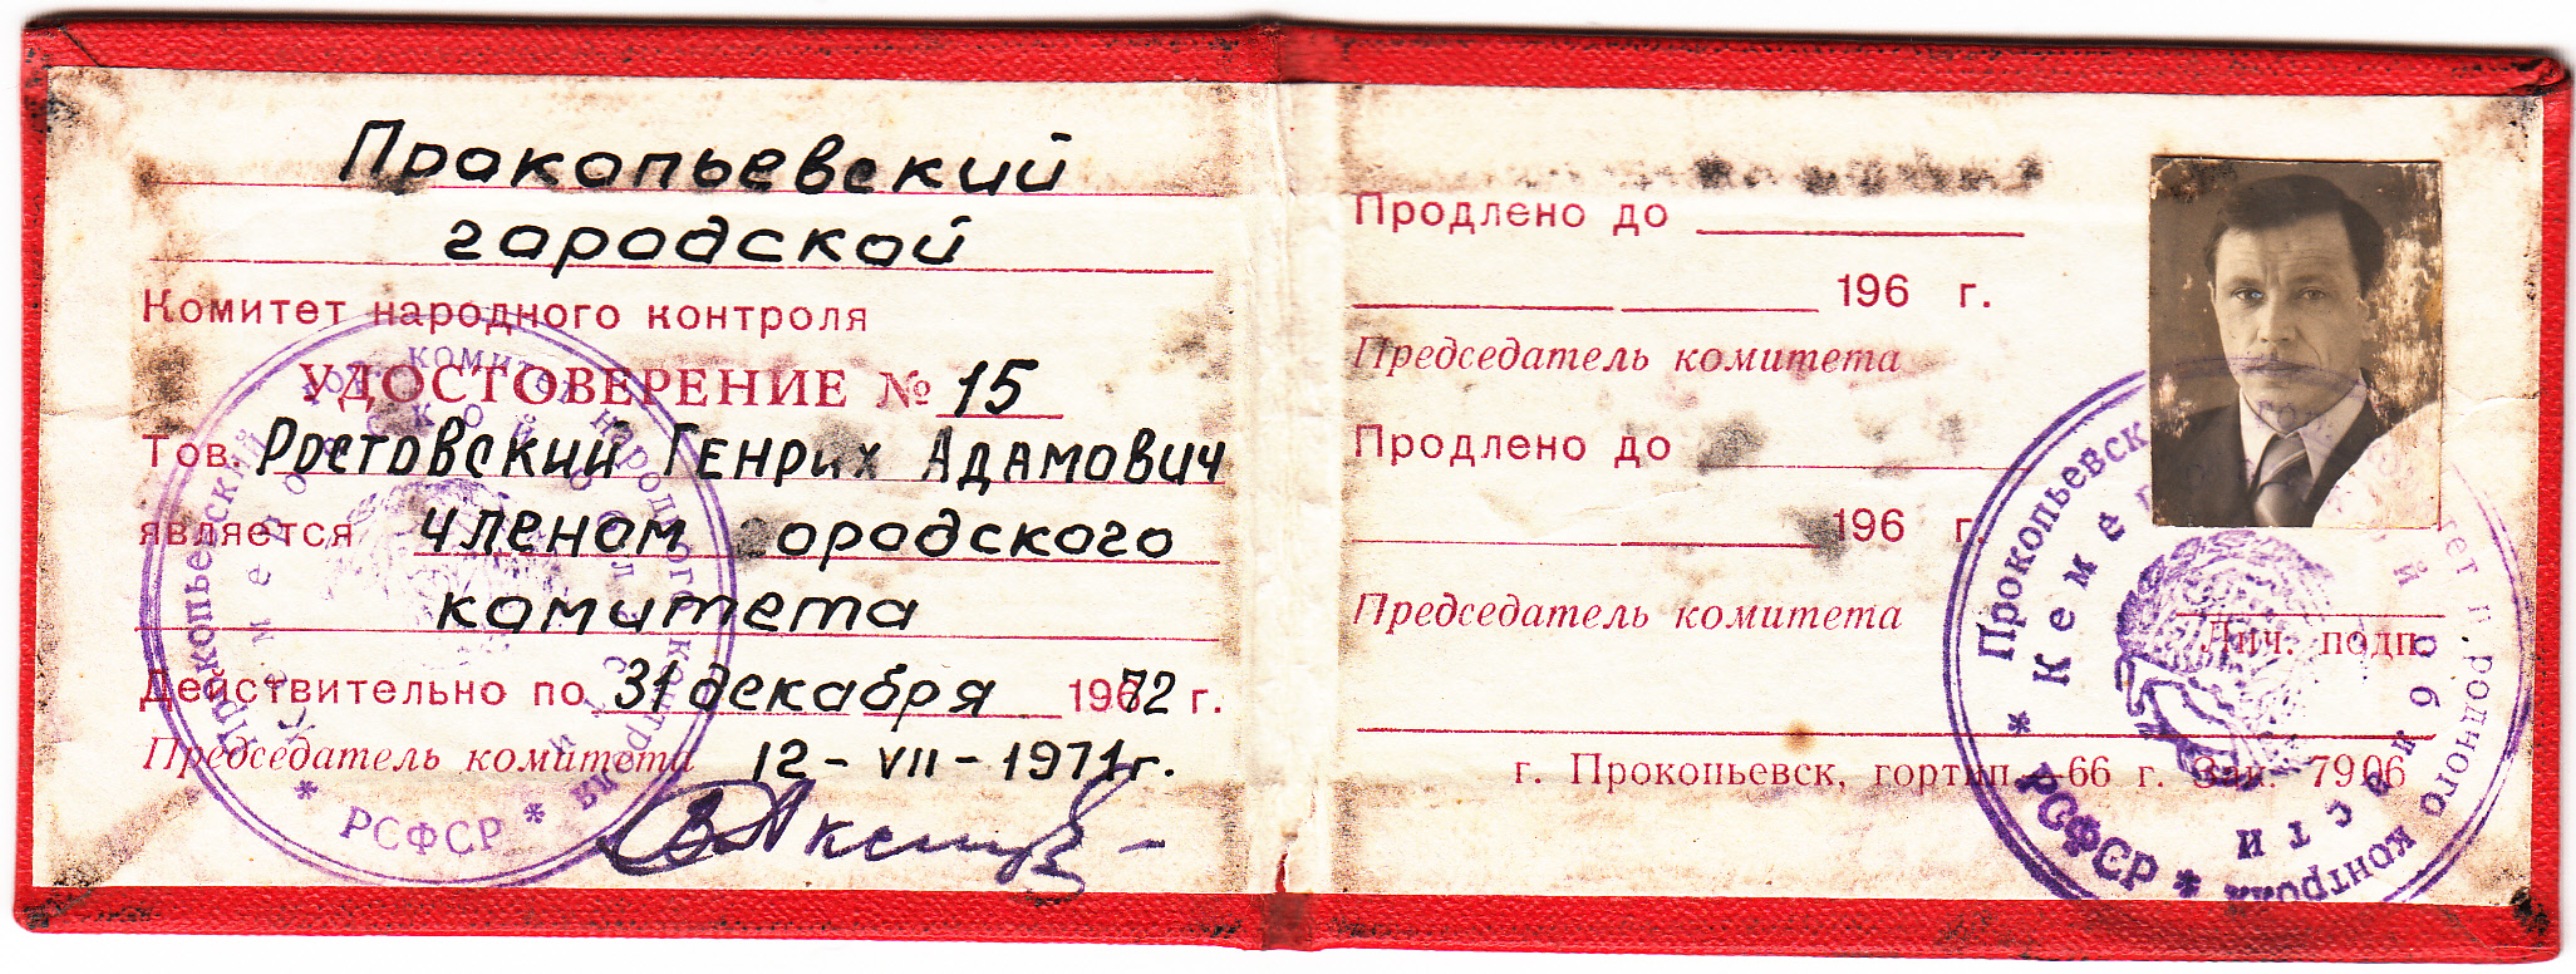 Прокопьевский
городской
Комитет народного контроля
УДОСТОВЕРЕНИЕ № 15
Тов. Ростовский Генрих Адамович
является членом городского
комитета
Действительно по 31 декабря 19672 г.
Председатель комитета 12-VII-1971г.
Прокопьевский гор. комитет народного контроля
Кемеровской области
* РСФСР *
Продлено до
196 г.
Председатель комитета
Продлено до
196 г.
Председатель комитета
Лич. подп.
г. Прокопьевск, гортип.—66 г. Зак. 7906
Прокопьевск комитет народного контроля
Кемеровской области
* РСФСР *